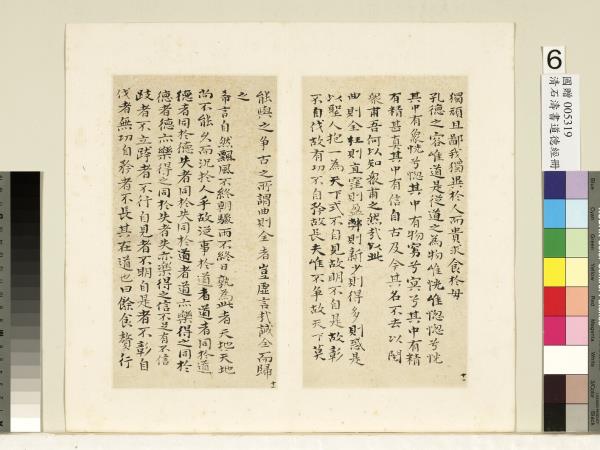 獨頑且鄙我獨異於人而貴求食於母
孔德之容惟道是從道之為物惟恍惟惚惚兮恍
其中有象恍兮惚其中有物窈兮冥兮其中有精
其精甚真其中有信自古及今其名不去以閱
衆甫吾何以知衆甫之然哉以此
曲則全枉則直窪則盈弊則新少則得多則惑是
以聖人抱一為天下式不自見故明不自是故彰
不自伐故有功不自矜故長夫惟不爭故天下莫
十一
能與之爭古之所謂曲則全者豈虛言哉誠全而歸
之
希言自然飄風不終朝驟雨不終日孰為此者天地天地
尚不能久而況於人乎故從事於道者道者同於道
德者同於德失者同於失同於道者道亦樂得之同於
德者德亦樂得之同於失者失亦樂得之信不足有不信
跂者不立跨者不行自見者不明自是者不彰自
伐者無功自矜者不長其在道也曰餘食贅行
十二
6
國贈 005319
清石濤書道德經冊
Blue
Cyan
Green
Yellow
Red
Magenta
White
3/Color
Black